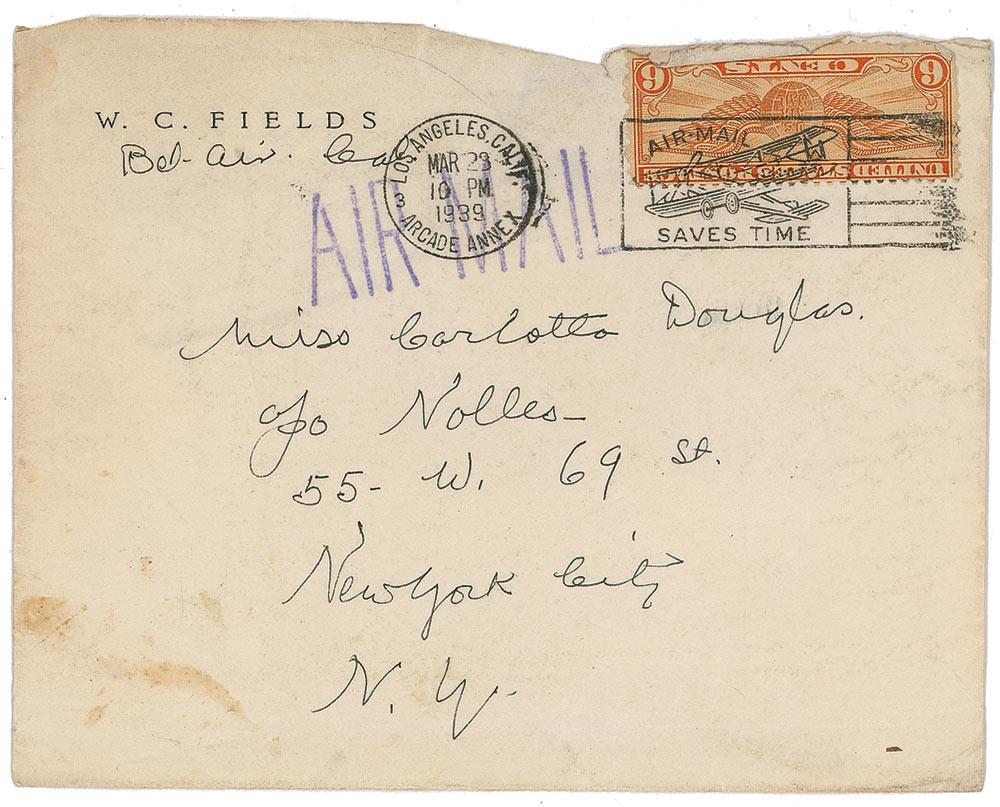 W. C. FIELDS
Bel-Air. Cal
LOS ANGELES, CALIF.
MAR 23
10 PM
1939
3 ARCADE ANNEX
AIR MAIL
6 CENTS 6
UNITED STATES
AIR-MAIL
SAVES TIME
Miss Carlotta Douglas.
c/o Nolles-
55- W. 69 St.
New York City
N. Y.